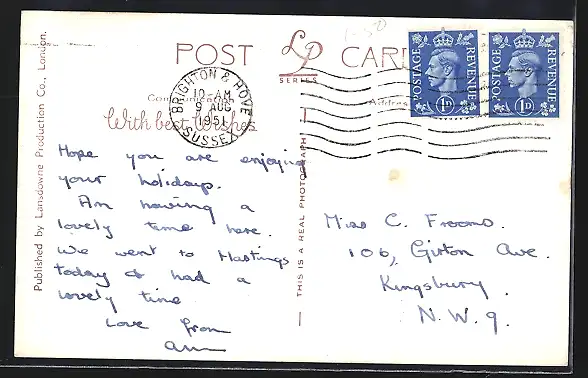 POST CARD
LP
SERIES
Communication
Address
With best wishes
BRIGHTON & HOVE
10-AM
9 AUG
1951
SUSSEX
POSTAGE REVENUE
1D
POSTAGE REVENUE
1D
Published by Lansdowne Production Co., London.
THIS IS A REAL PHOTOGRAPH
Hope you are enjoying
your holidays.
Am having a
lovely time here.
We went to Hastings
today & had a
lovely time
Love from
Ann
Miss C. Froond.
106, Girton Ave.
Kingsbury.
N.W.9.